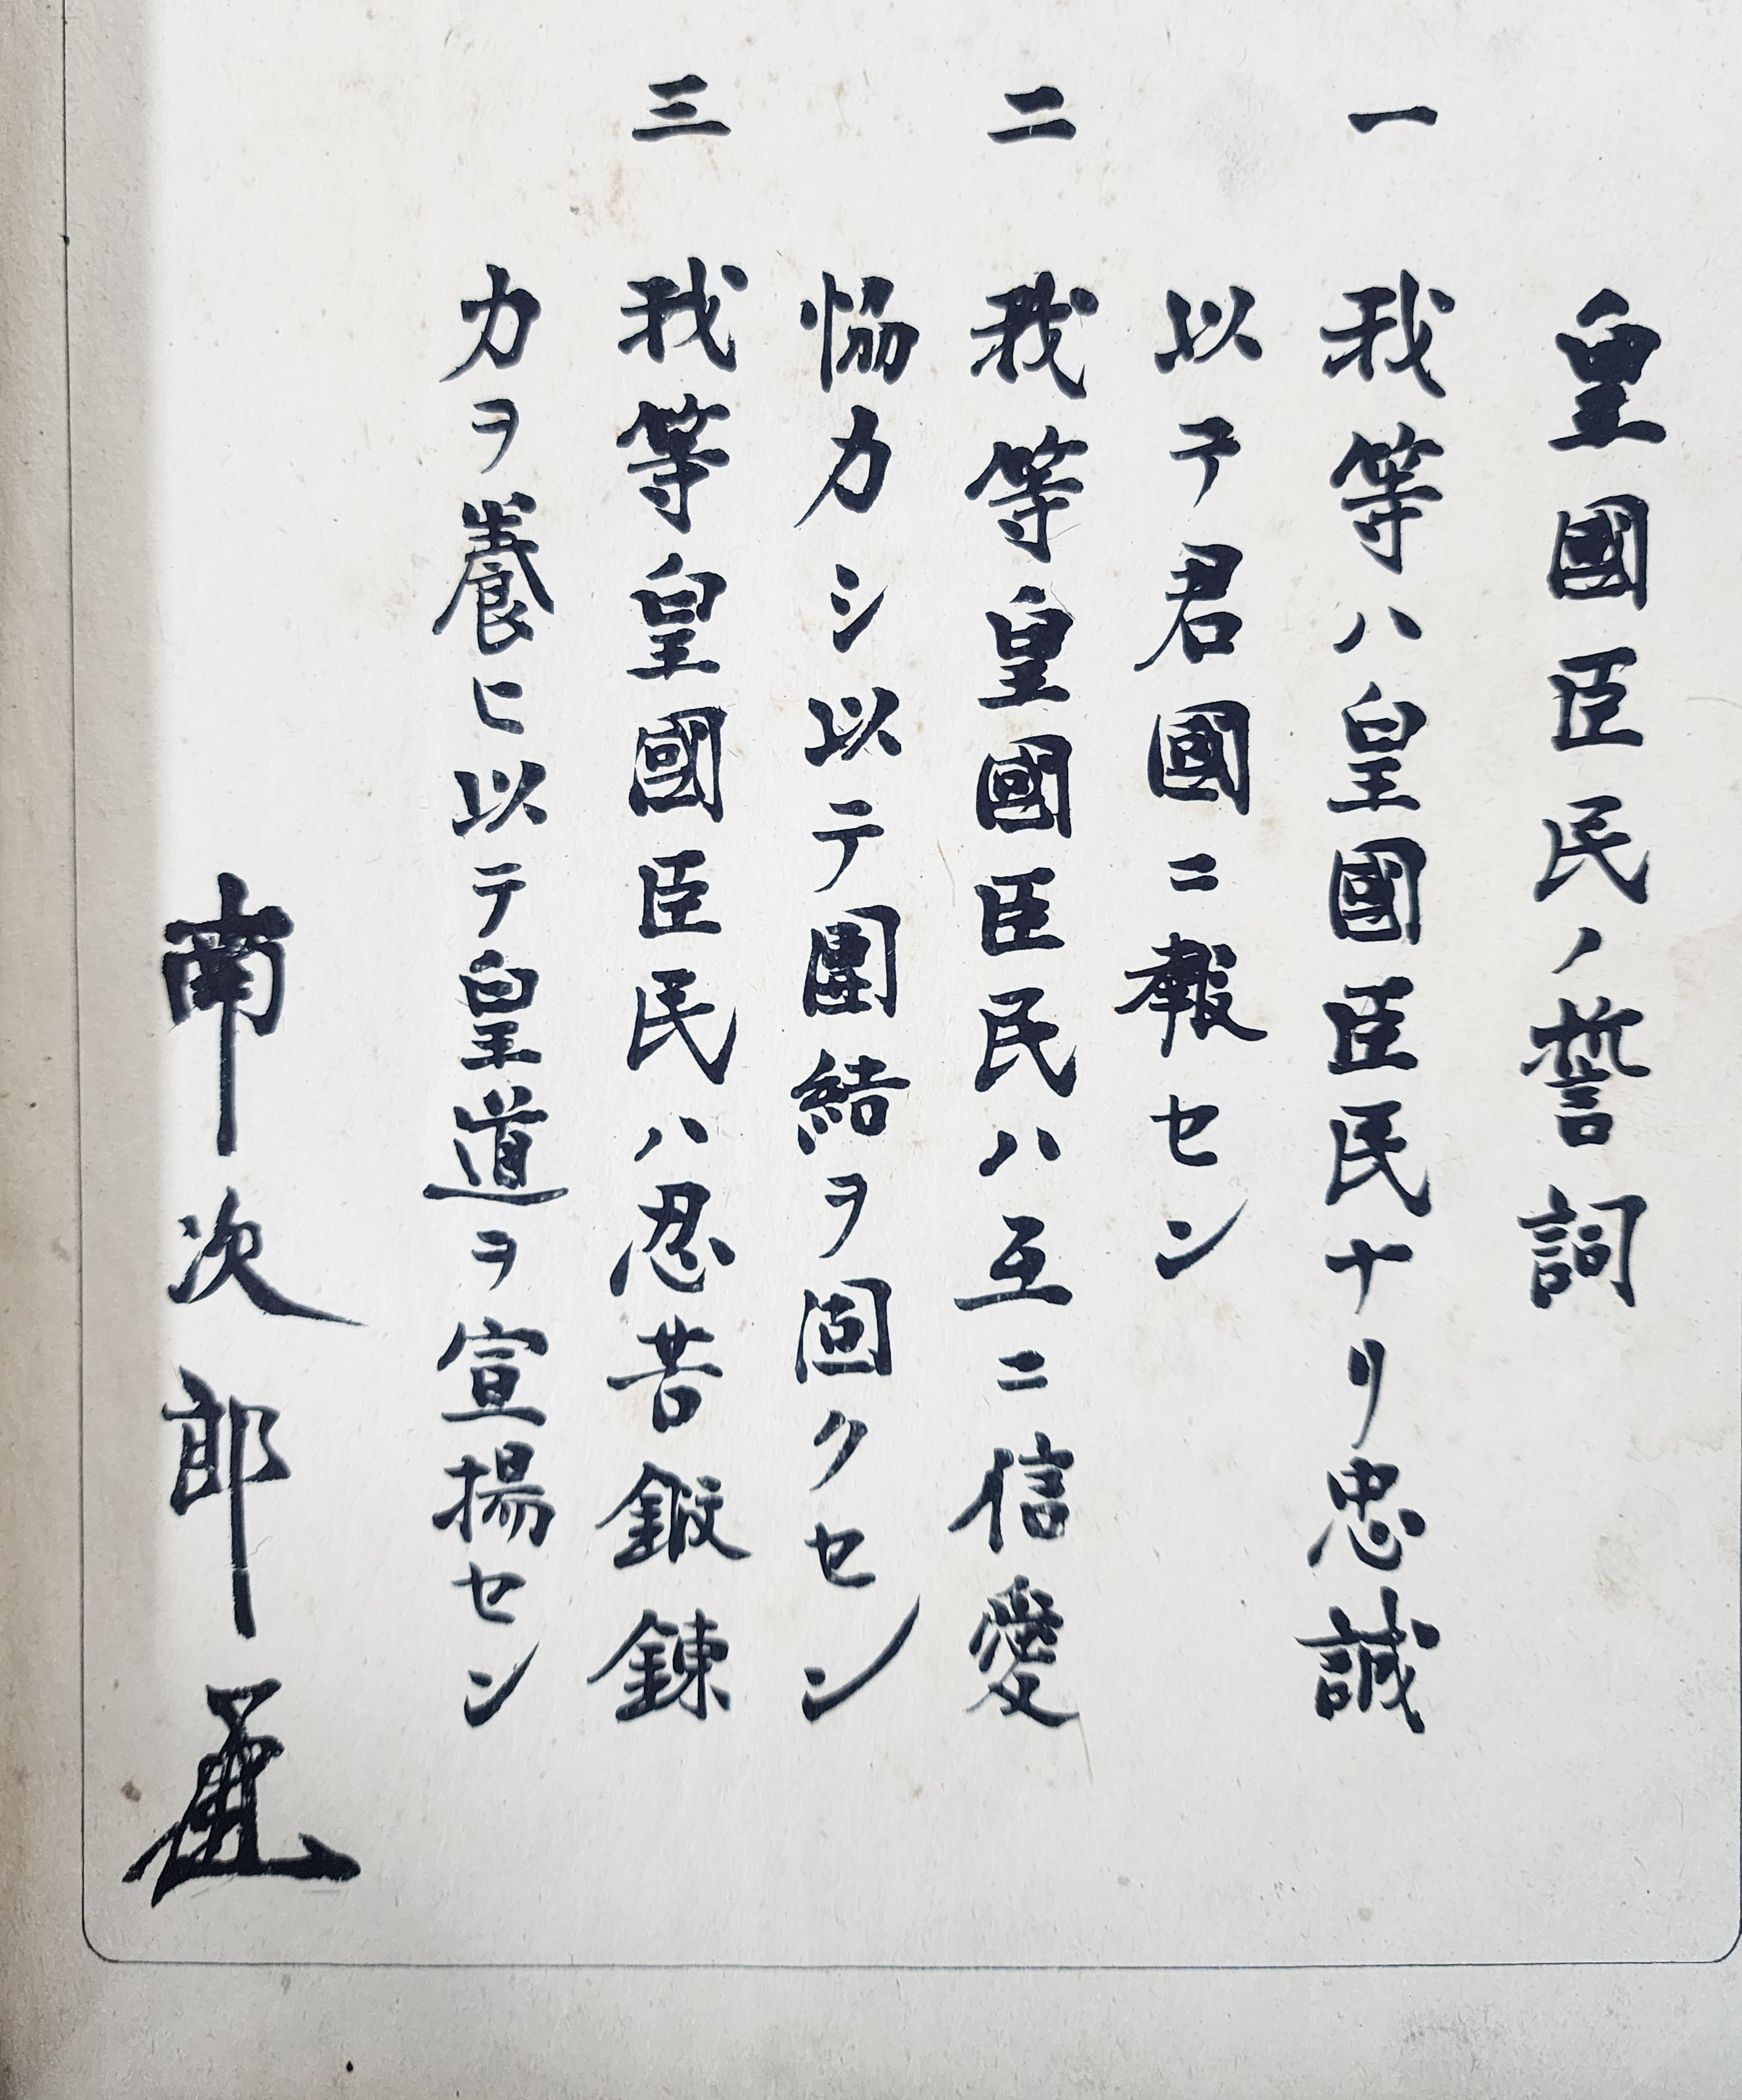 皇國臣民ノ誓詞
一 我等ハ皇國臣民ナリ忠誠
以テ君國ニ報セン
二 我等皇國臣民ハ互ニ信愛
恊力シ以テ團結ヲ固クセン
三 我等皇國臣民ハ忍苦鍛錬
力ヲ養ヒ以テ皇道ヲ宣揚セン
南次郎